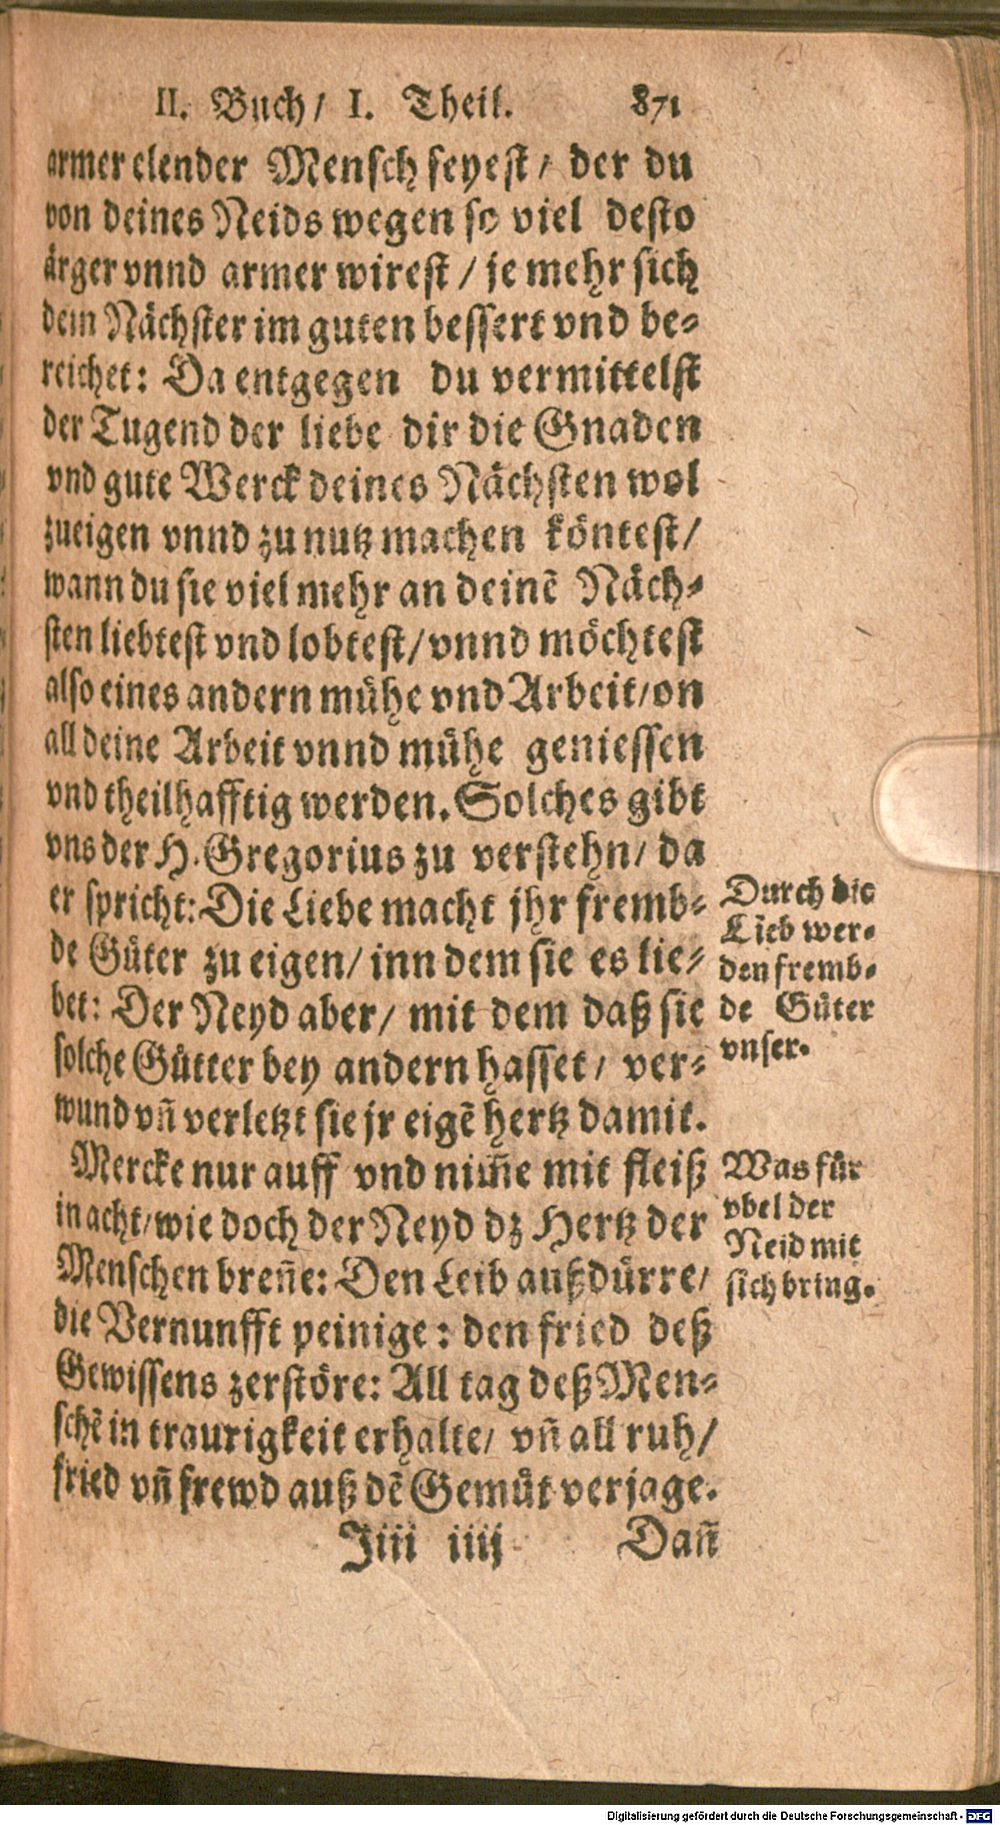 II. Buch/ I. Theil. 871
armer elender Mensch seyest/ der du
von deines Neids wegen so viel desto
ärger vnnd armer wirest/ je mehr sich
dein Nächster im guten bessert vnd be-
reichet: Da entgegen du vermittelst
der Tugend der liebe dir die Gnaden
vnd gute Werck deines Nächsten wol
zueigen vnnd zu nutz machen köntest/
wann du sie viel mehr an deinē Näch-
sten liebtest vnd lobtest/ vnnd möchtest
also eines andern mühe vnd Arbeit/ on
all deine Arbeit vnnd mühe geniessen
vnd theilhafftig werden. Solches gibt
vns der H. Gregorius zu verstehn/ da
er spricht: Die Liebe macht jhr fremb-
de Güter zu eigen/ inn dem sie es lie-
bet: Der Neyd aber/ mit dem daß sie
solche Gütter bey andern hasset/ ver-
wund vñ verletzt sie jr eigē hertz damit.
Mercke nur auff vnd nim̃e mit fleiß
in acht/ wie doch der Neyd dz Hertz der
Menschen breñe: Den Leib außdürre/
die Vernunfft peinige: den fried deß
Gewissens zerstöre: All tag deß Men-
schē in traurigkeit erhalte/ vñ all ruh/
fried vñ frewd auß dē Gemüt verjage.
Jiii iiij Dañ
Durch die
Lieb wer-
den fremb-
de Güter
vnser.
Was für
vbel der
Neid mit
sich bring.
Digitalisierung gefördert durch die Deutsche Forschungsgemeinschaft - DFG